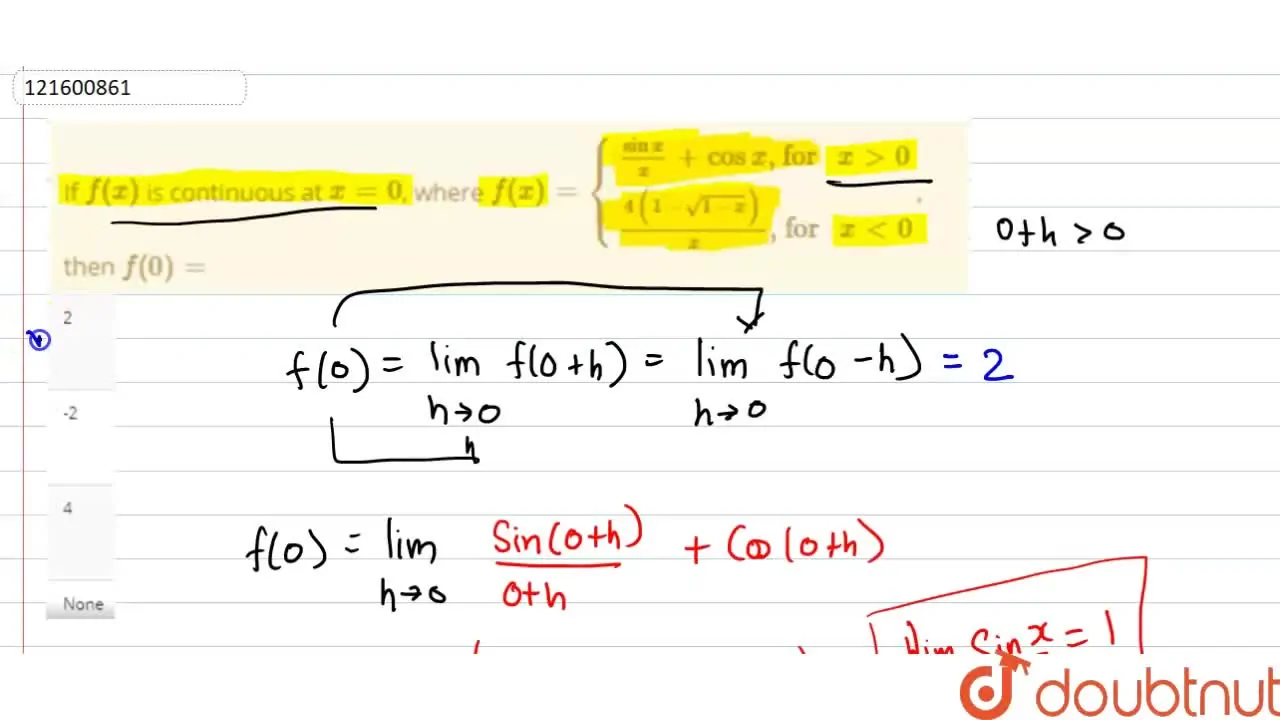 121600861
If f(x) is continuous at x = 0, where f(x) = { sin x / x + cos x, for x > 0
4(1 − √(1 − x)) / x, for x < 0 .
then f(0) =
0+h > 0
2
f(0) = lim h→0 f(0+h) = lim h→0 f(0−h) = 2
-2
h
4
f(0) = lim h→0 Sin(0+h) / 0+h + Cos(0+h)
None
lim Sin x = 1
doubtnut